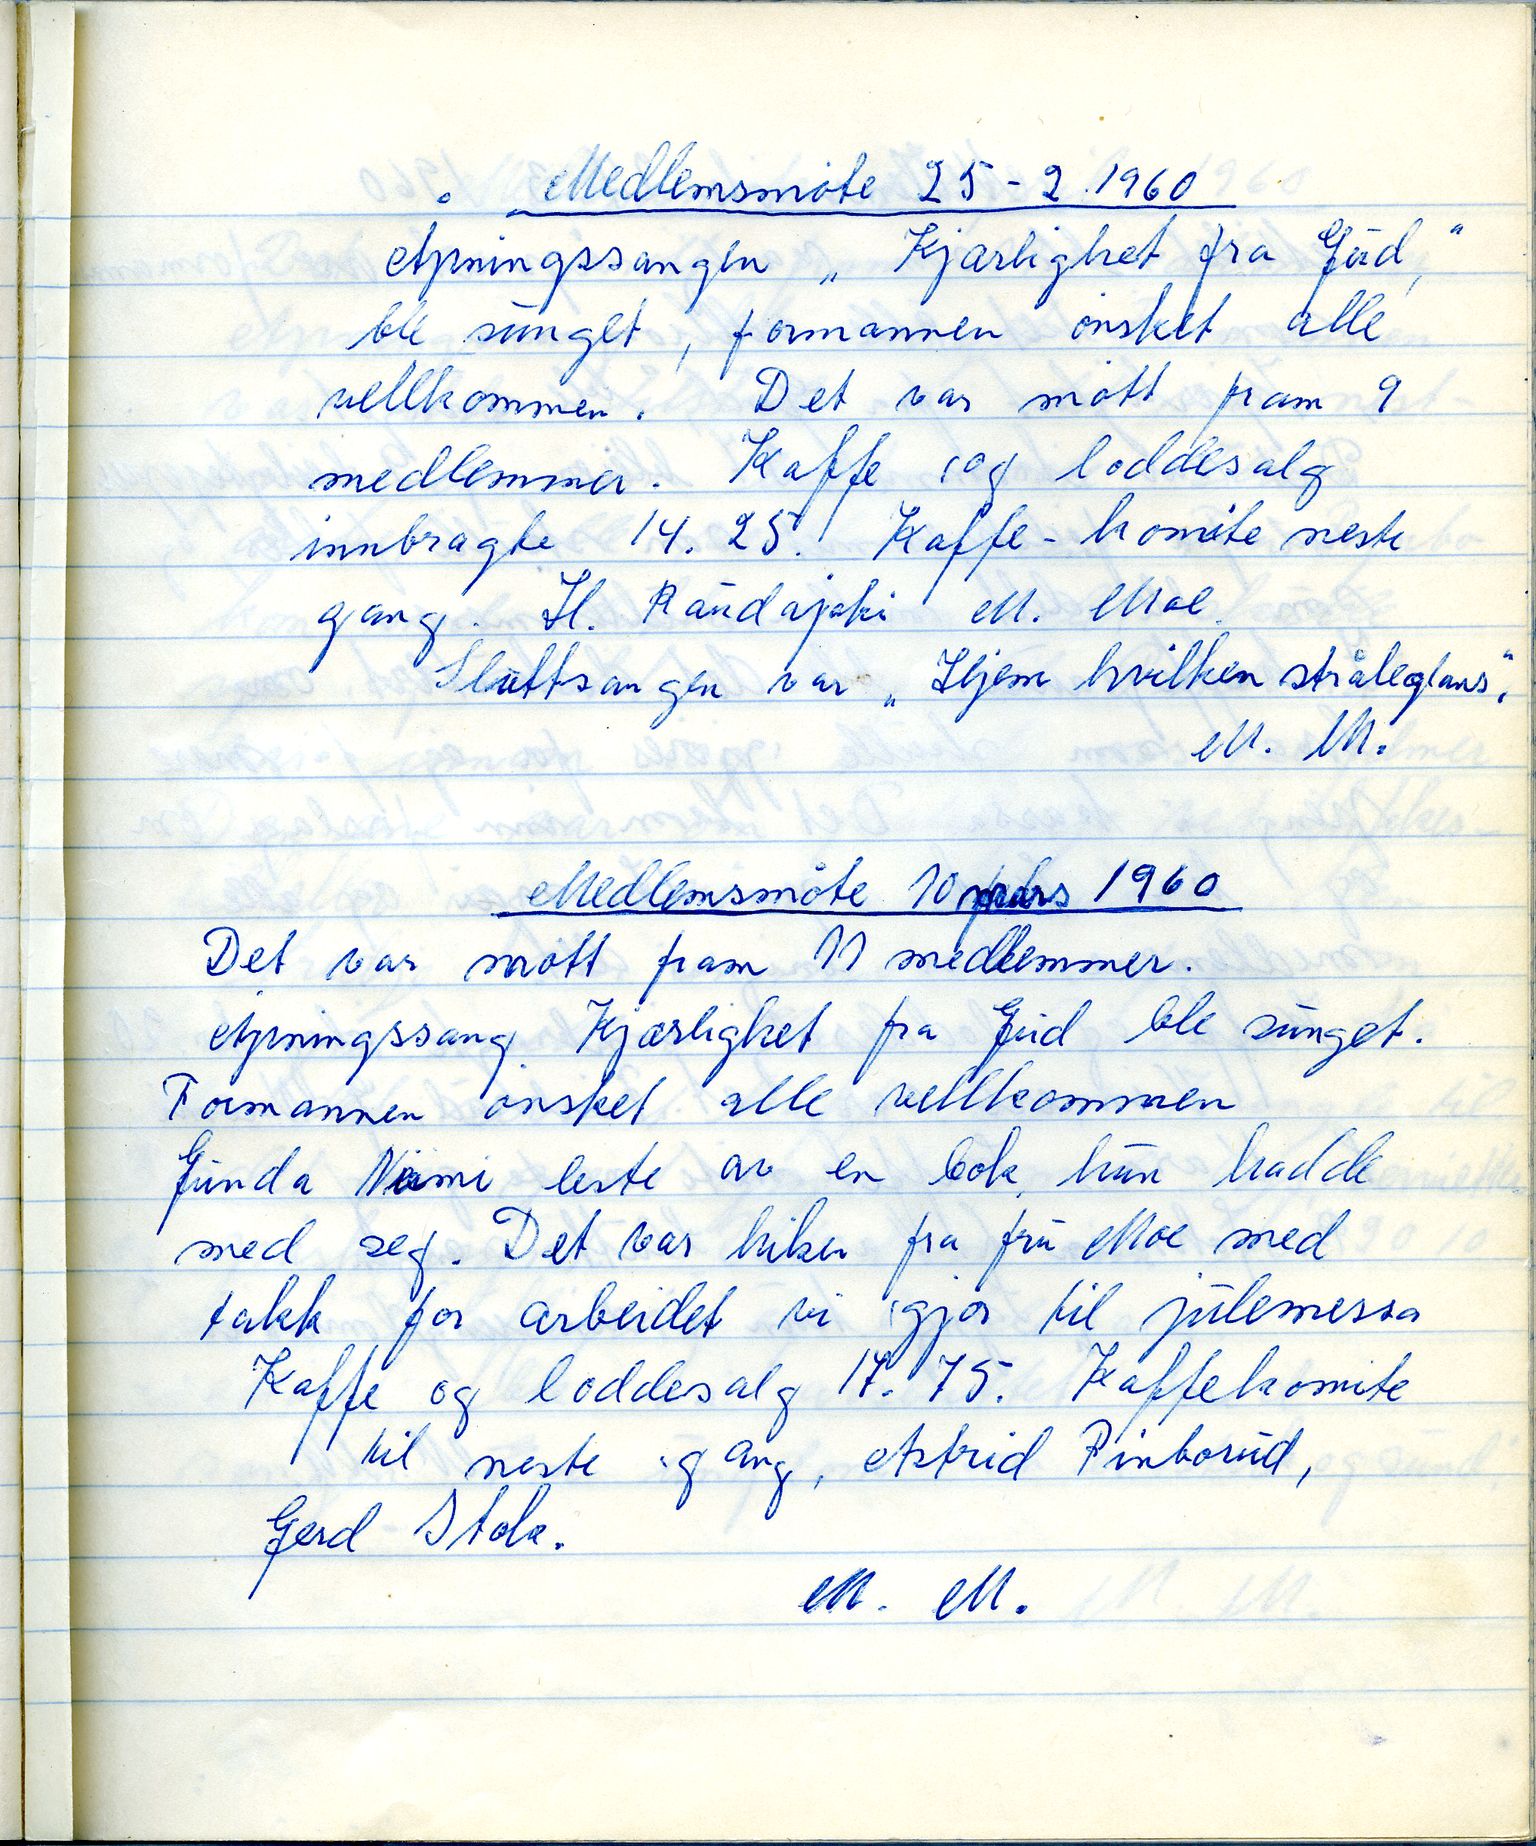 Medlemsmöte 25-2.1960
Åpningssangen „Kjærlighet fra Gud,"
ble sunget, formannen önsket alle
vellkommen. Det var mött fram 9
medlemmer. Kaffe og loddesalg
innbragte 14.25. Kaffe-komite neste
gang. H. Raudajoki M. Moe.
Sluttsangen var „Hjem hvilken stråleglans".
M. M.
Medlemsmöte 10 mars 1960
Det var mött fram 11 medlemmer.
Åpningssang Kjærlighet fra Gud ble sunget.
Formannen önsket alle vellkommen
Gunda Niemi leste av en bok hun hadde
med seg. Det var hilsen fra fru Moe med
takk for arbeidet vi gjor til julemessa
Kaffe og loddesalg 17.75. Kaffekomite
til neste gang, Astrid Finborud,
Gerd Stola.
M. M.